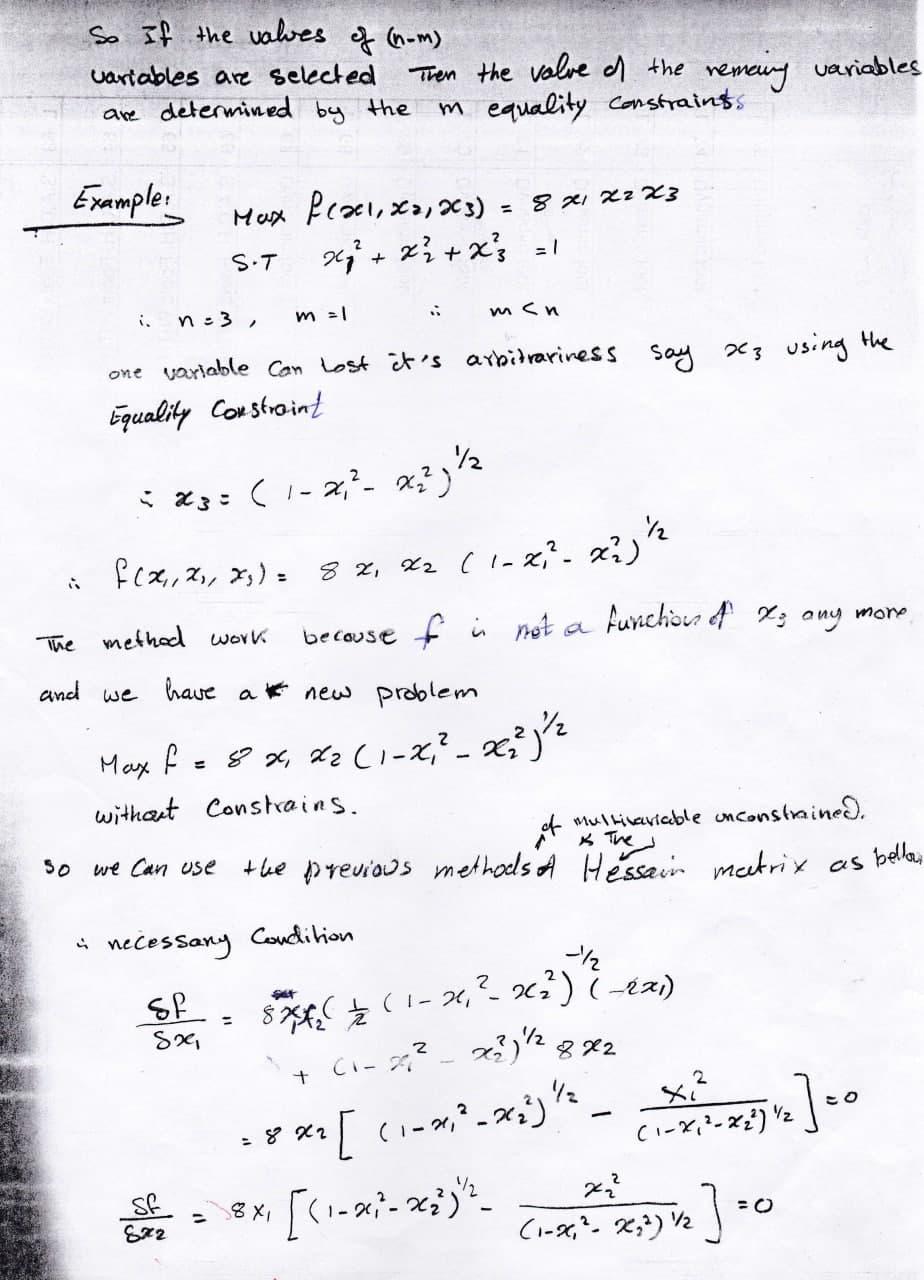 So If the values of (n-m)
variables are selected Then the value of the remaing variables
are determined by the m equality constraints
Example:
Max f(x1, x2, x3) = 8 x1 x2 x3
S.T x₁² + x₂² + x₃² = 1
∴ n = 3 , m = 1 ∵ m < n
one variable can Lost it's arbitrariness say x₃ using the
Equality Constraint
∴ x₃ = ( 1 - x₁² - x₂² )^1/2
∴ f(x₁, x₂, x₃) = 8 x₁ x₂ ( 1 - x₁² - x₂² )^1/2
The method work because f is not a function of x₃ any more
and we have a new problem
Max f = 8 x₁ x₂ ( 1 - x₁² - x₂² )^1/2
without Constrains.
of multivariable unconstrained.
& The
So we can use the previous methods Hessain matrix as bellow
∴ necessary Condition
δf/δx₁ = 8x₁x₂ ( 1/2 ( 1 - x₁² - x₂² )^-1/2 ( -2x₁ )
+ ( 1 - x₁² - x₂² )^1/2 8 x₂
= 8 x₂ [ ( 1 - x₁² - x₂² )^1/2 - x₁² / ( 1 - x₁² - x₂² )^1/2 ] = 0
δf/δx₂ = 8 x₁ [ ( 1 - x₁² - x₂² )^1/2 - x₂² / ( 1 - x₁² - x₂² )^1/2 ] = 0